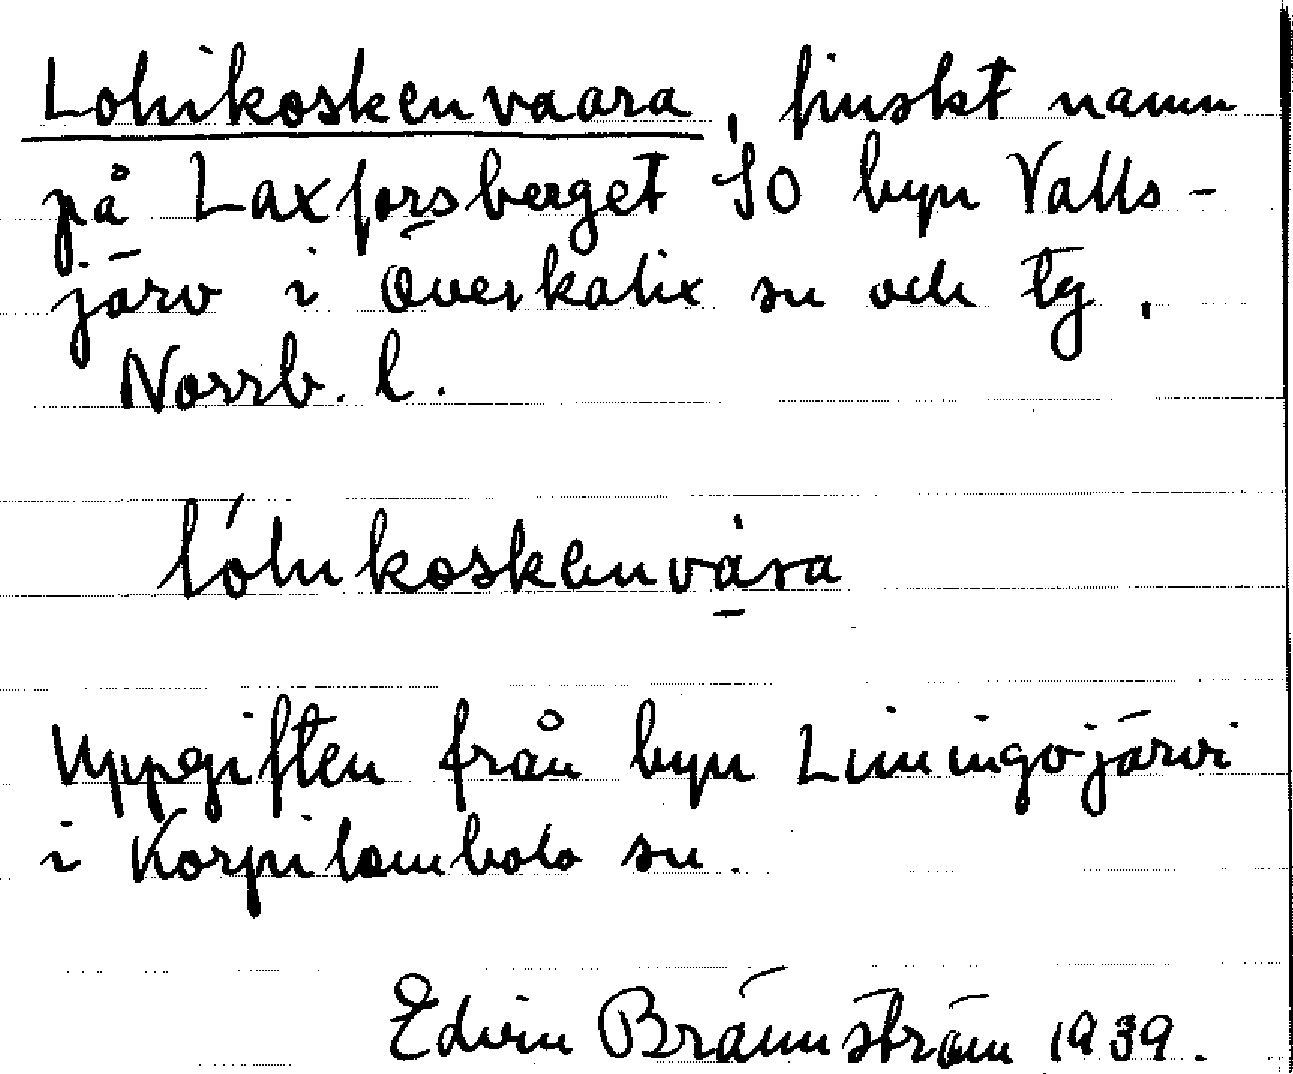 Lohikoskenvaara, finskt namn
på Laxforsberget SO byn Valls-
järv i Överkalix sn och tg.
Norrb. l.
lóhikoskenvạ̄ra
Uppgiften från byn Liiningojärvi
i Korpilombolo sn.
Edvin Brännström 1939.